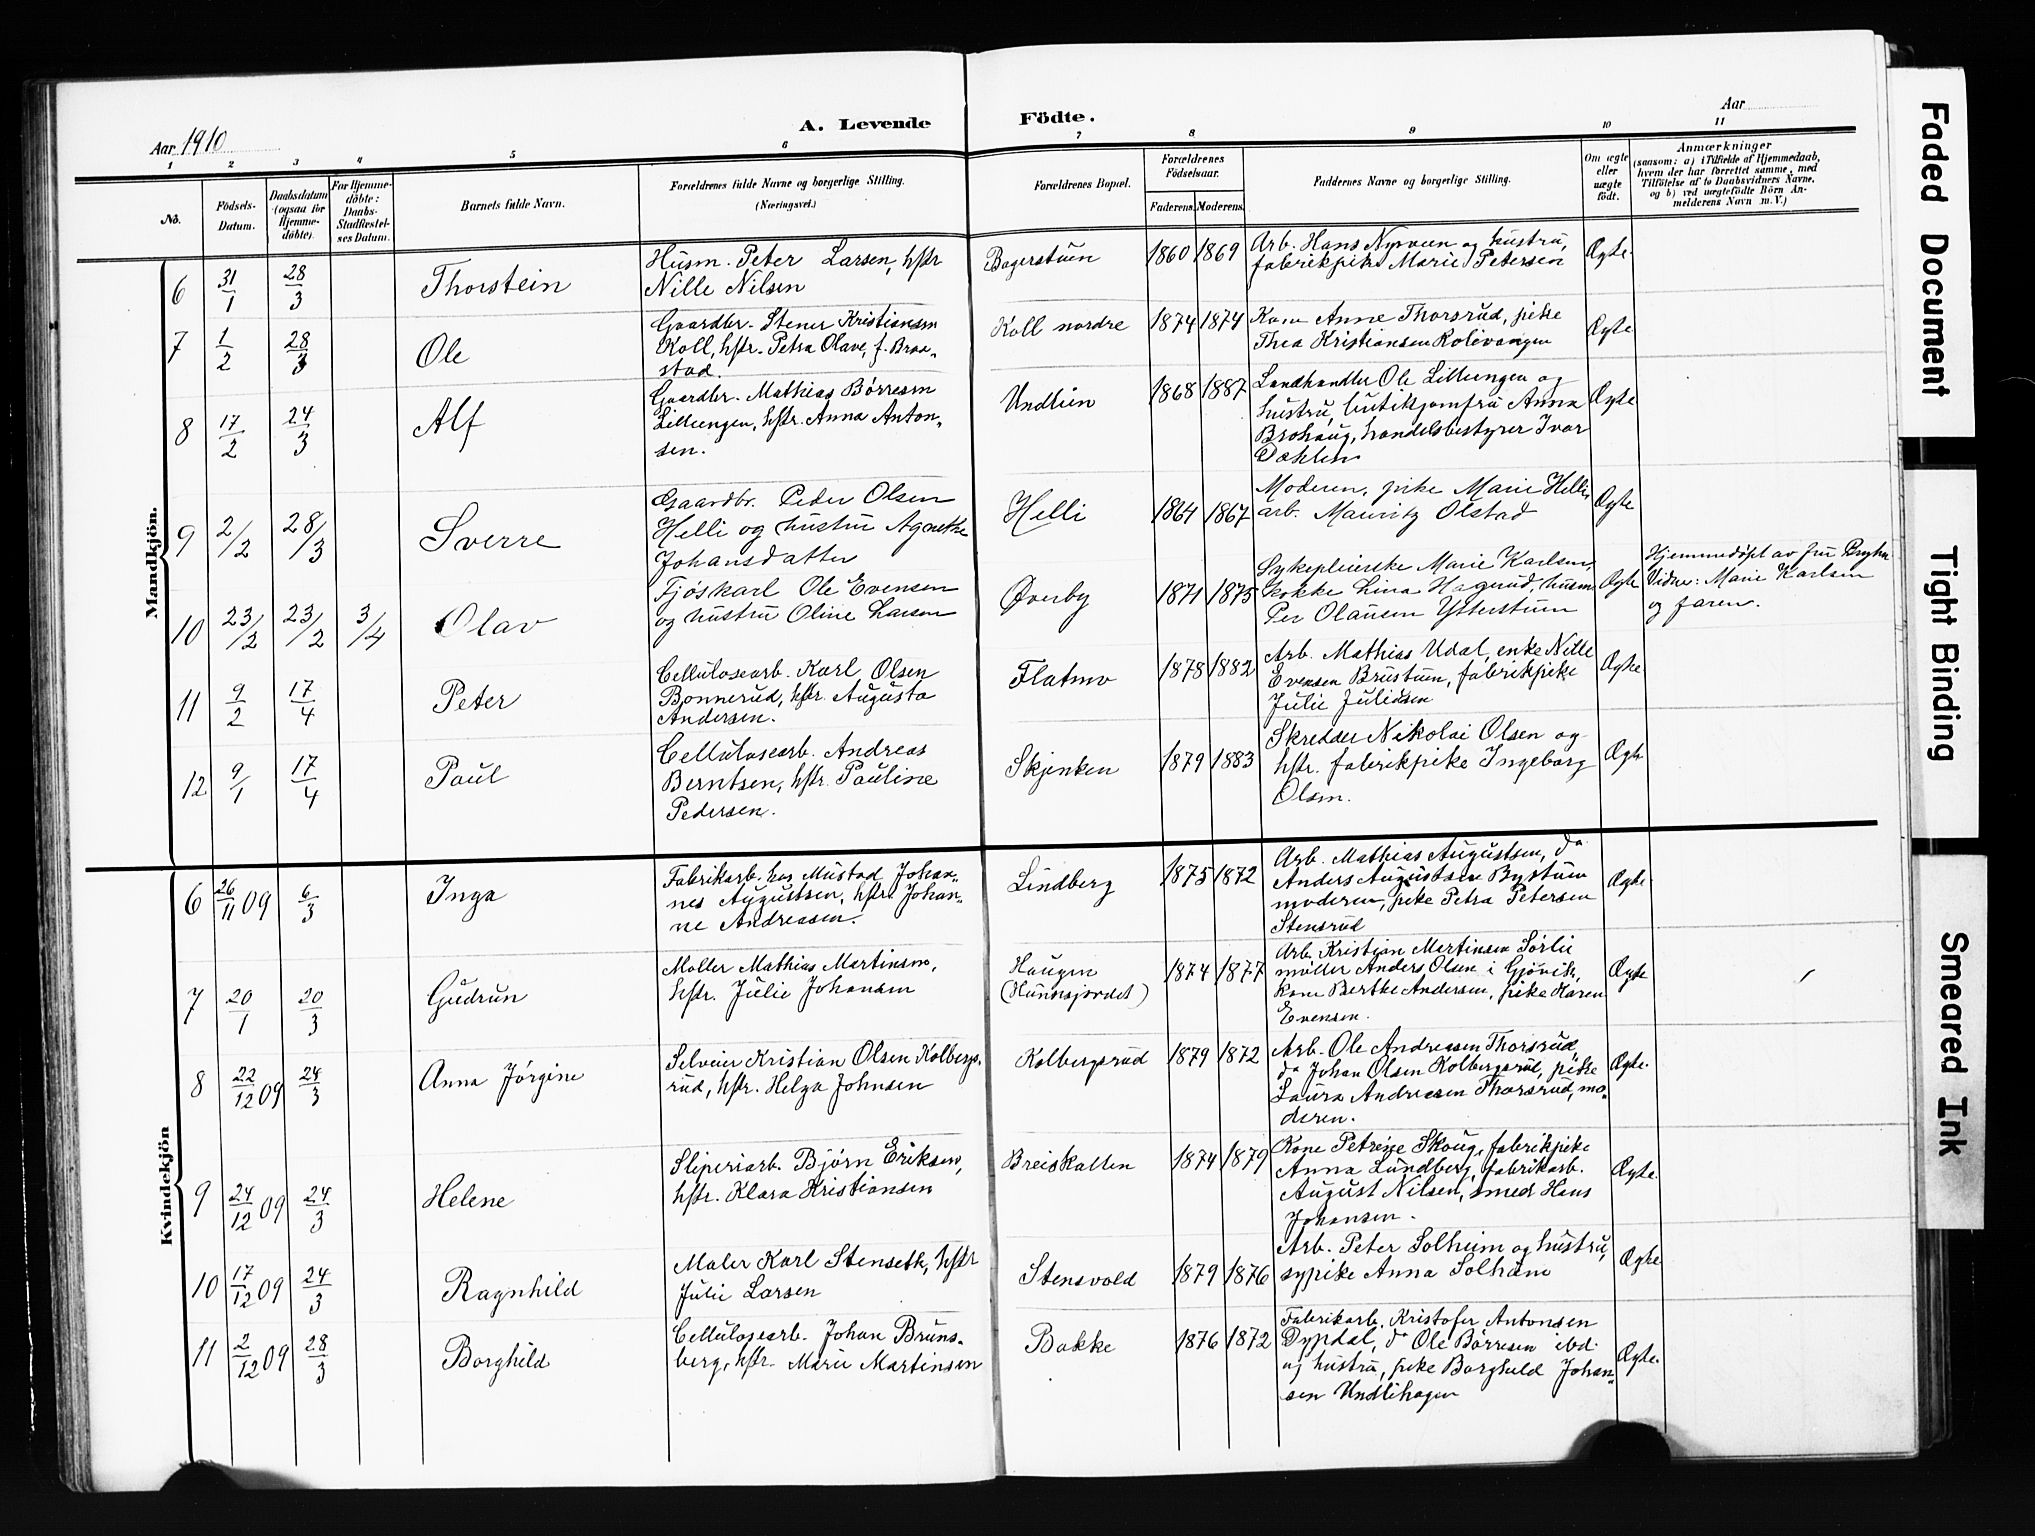 Aar 1910
A. Levende Födte.
Aar
1 2 3 4 5 6 7 8 9 10 11
No.
Födsels-
Datum.
Daabsdatum
(ogsaa for
Hjemme-
döbte).
For Hjemme-
döbte:
Daabs-
Stadfæstel-
ses Datum.
Barnets fulde Navn.
Forældrenes fulde Navne og borgerlige Stilling.
(Næringsvei.)
Forældrenes Bopæl.
Forældrenes
Fødselsaar.
Faderens. Moderens.
Faddernes Navne og borgerlige Stilling.
Om ægte
eller
uægte
født.
Anmærkninger
(saasom: a) i Tilfælde af Hjemmedaab,
hvem der har forrettet samme, med
Tilföielse af to Daabsvidners Navne,
og b) ved uægtefödte Börn An-
melderens Navn m.V.)
Mandkjön.
6 31/1 28/3 Thorstein
Husm. Peter Larsen, hstr
Nille Nilsen
Bagerstuen 1860 1869
Arb. Hans Nyrveen og hustru,
fabrikpike Marie Petersen
Ægte.
7 1/2 28/3 Ole
Gaardbr. Stener Kristiansen
Koll, hstr. Petra Olave, f. Braa-
stad.
Koll nordre 1874 1874
Kone Anne Thorsrud, pike
Thea Kristiansen Kolivangen
Ægte
8 17/2 24/3 Alf
Gaardbr. Mathias Børresen
Lilleengen, hstr. Anna Anton-
sen.
Undlien 1868 1887
Landhandler Ole Lilleengen og
hustru, butikjomfru Anna
Brohaug, handelsbestyrer Ivar
Dæhlen
Ægte
9 2/2 28/3 Sverre
Gaardbr. Peder Olsen
Helli og hustru Agnethe
Johansdatter
Helli 1864 1867
Moderen, pike Marie Helli,
arb. Mauritz Olstad
Ægte
10 23/2 23/2 3/4 Olav
Fjøskarl Ole Evensen
og hustru Oline Larsen
Øverby 1871 1875
Sykepleierske Marie Karlsen,
kokke Lina Hagerud, husm.
Per Olausen Ytterstuen
Ægte
Hjemmedøpt av fru Bryhn
Vidner: Marie Karlsen
og faren.
11 9/2 17/4 Peter
Cellulosearb. Karl Olsen
Bonnerud, hstr. Augusta
Andersen.
Flatmo 1878 1882
Arb. Mathias Udal, enke Nille
Evensen Brustuen, fabrikpike
Julie Juliussen
Ægte
12 9/1 17/4 Paul
Cellulosearb. Andreas
Berntsen, hstr. Pauline
Pedersen.
Skjenken 1879 1883
Skredder Nikolai Olsen og
hstr. fabrikpike Ingeborg
Olsen.
Ægte
Kvindekjön
6 26/11 09 6/3 Inga
Fabrikarb. hos Mustad Johan-
nes Augustsen, hstr. Johan-
ne Andreasen.
Lindberg 1875 1872
Arb. Mathias Augustsen, do
Anders Augustsen Bystuen
moderen, pike Petra Petersen
Stensrud
Ægte
7 20/1 20/3 Gudrun
Møller Mathias Martinsen,
hstr. Julie Johansen
Haugen
(Hunnsjordet) 1874 1877
Arb. Kristian Martinsen Sørlie
møller Anders Olsen i Gjövik,
kone Berthe Andersen, pike Karen
Evensen.
Ægte
8 22/12 09 24/3 Anna Jørgine
Selveier Kristian Olsen Kolbergs-
rud, hstr. Helga Johnsen
Kolbergsrud 1879 1872
Arb. Ole Andreasen Thorsrud,
do Johan Olsen Kolbergsrud, pike
Laura Andreasen Thorsrud, mo-
deren.
Ægte.
9 24/12 09 24/3 Helene
Sliperiarb. Bjørn Eriksen,
hstr. Klara Kristiansen
Breiskallen 1874 1879
Kone Petrine Skoug, fabrikpike
Anna Lundberg, fabrikarb.
August Nilsen, smed Hans
Johansen.
Ægte.
10 17/12 09 24/3 Ragnhild
Maler Karl Stenseth, hstr
Julie Larsen
Stensvold 1879 1876
Arb. Peter Solheim og hustru,
sypike Anna Solheim
Ægte
11 2/12 09 28/3 Borghild
Cellulosearb. Johan Bruns-
berg, hstr. Marie Martinsen
Bakke 1876 1872
Fabrikarb. Kristofer Antonsen
Dypdal, do Ole Børresen ibd.
og hustru, pike Borghild Johan-
sen Undlihagen
Ægte.
Faded Document
Tight Binding
Smeared Ink